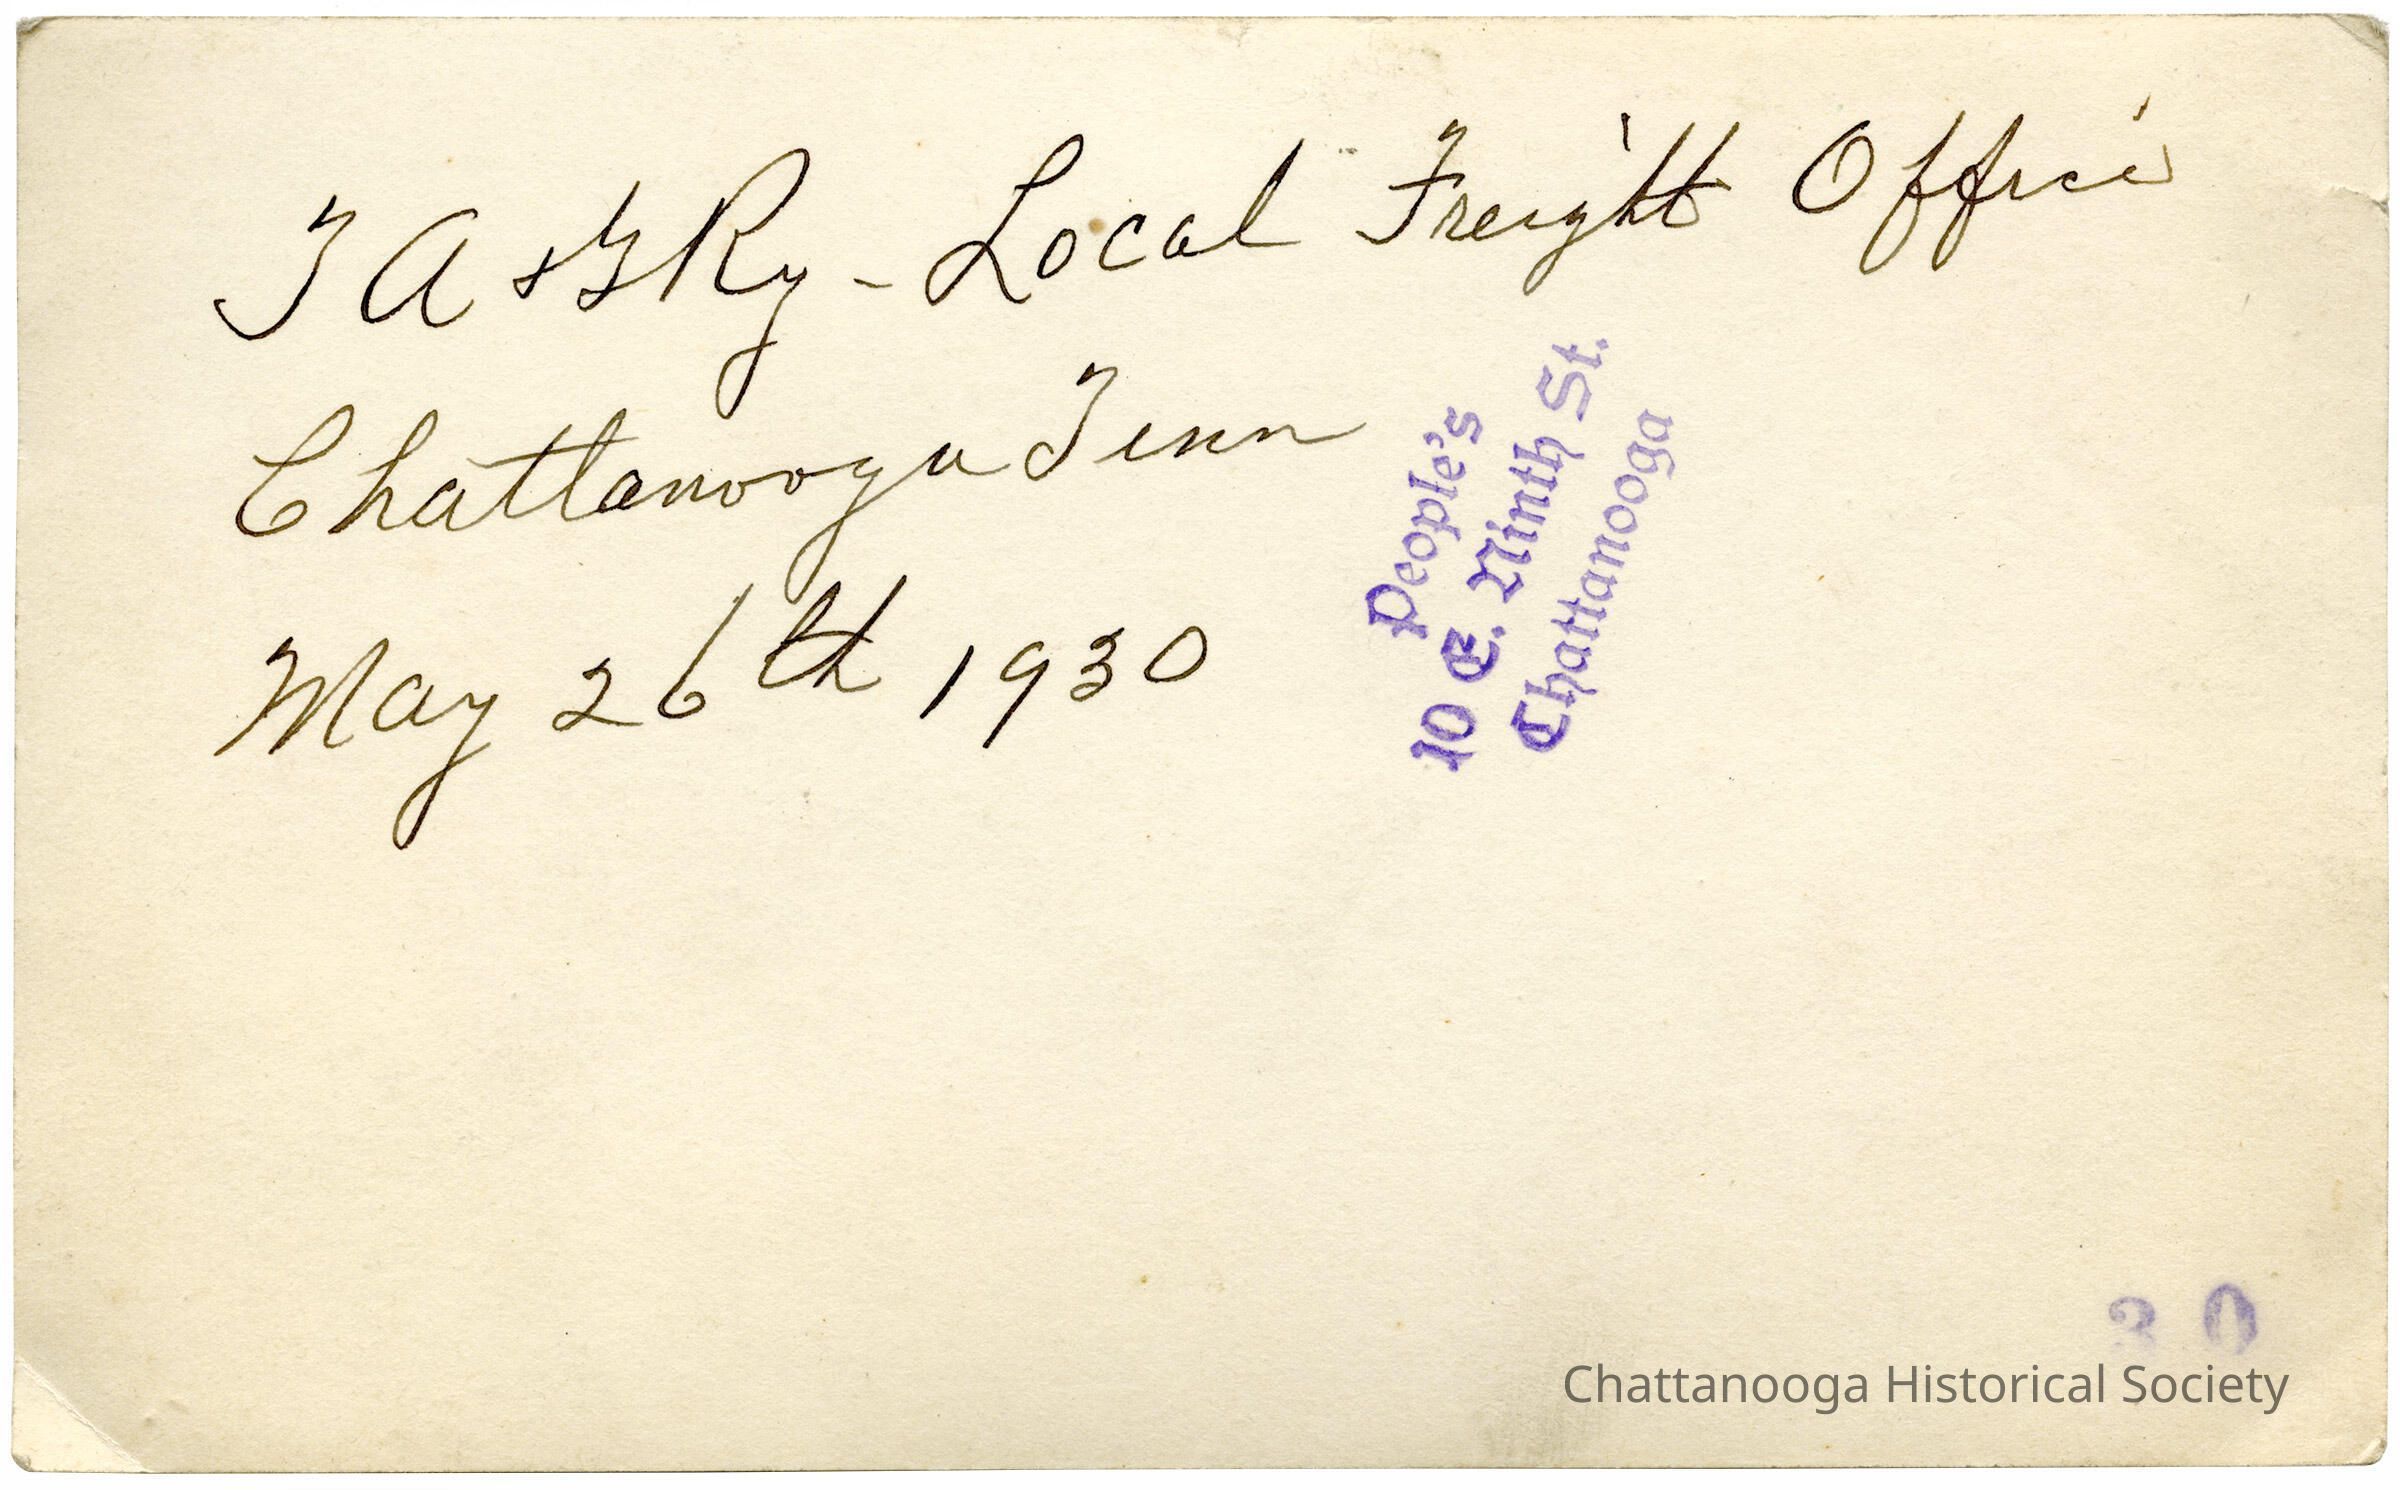 T A & G Ry - Local Freight Office
Chattanooga Tenn
May 26th 1930
People's
10 E. Ninth St.
Chattanooga
30
Chattanooga Historical Society